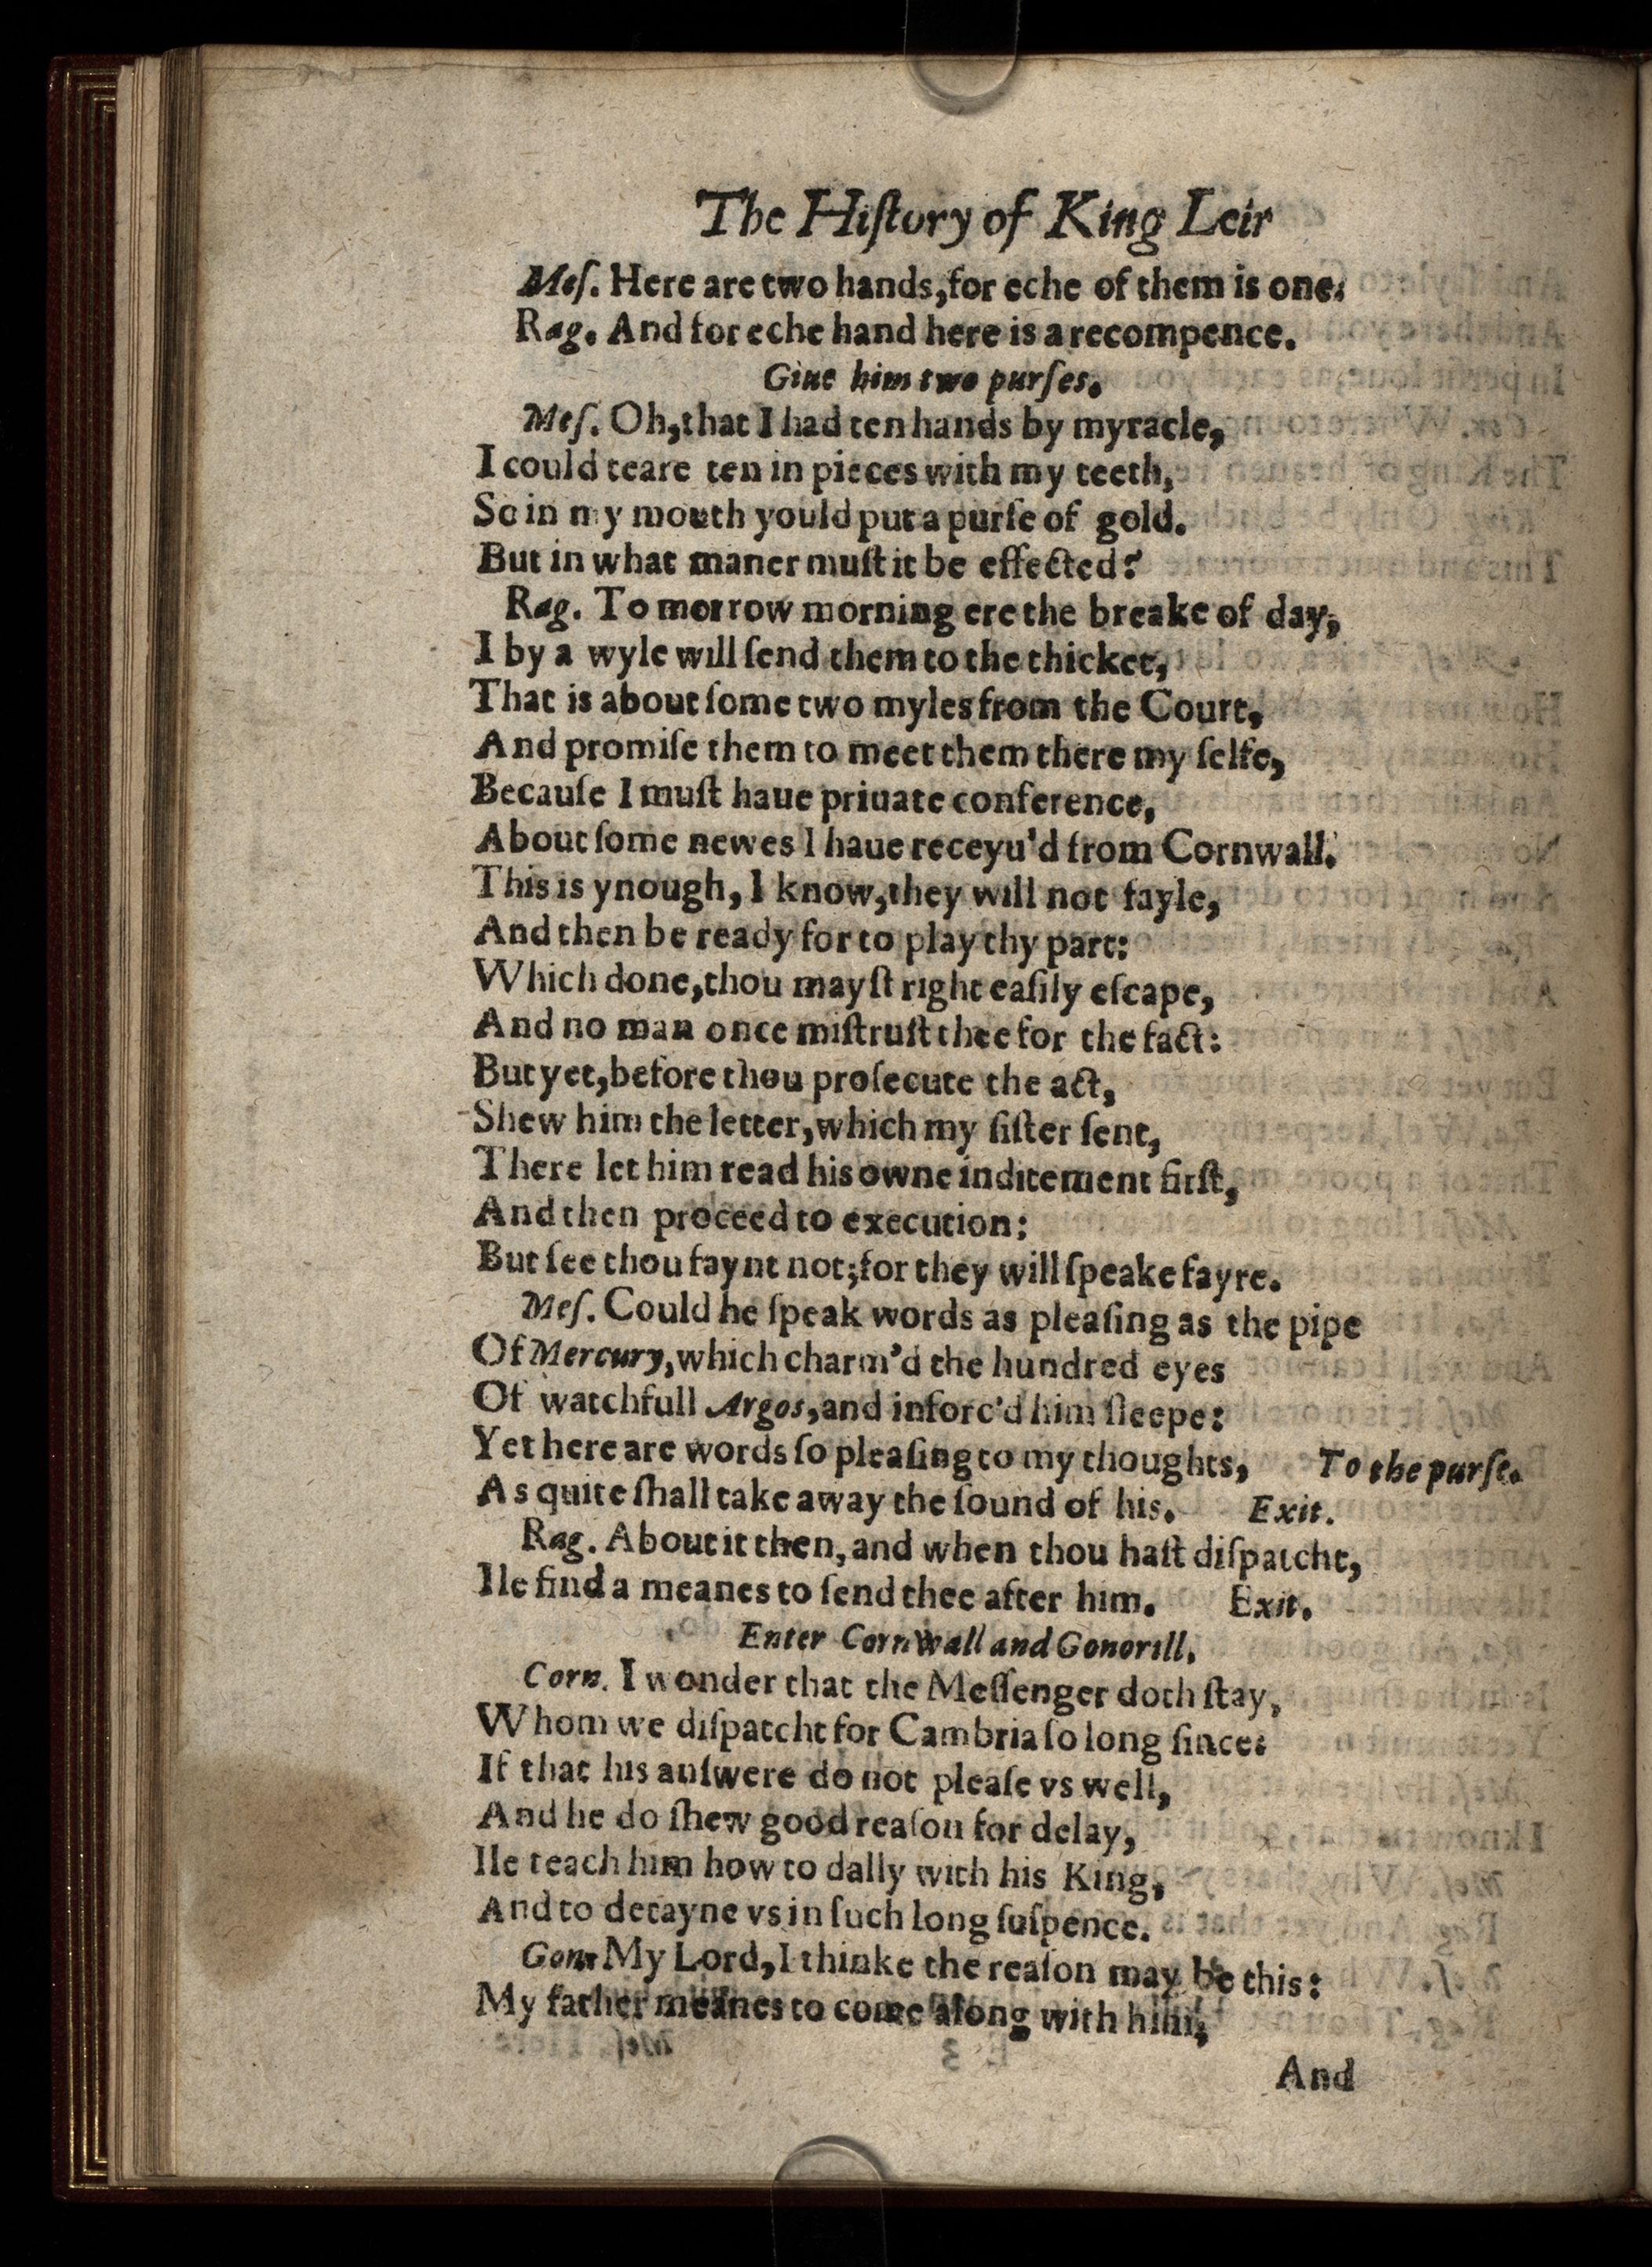 The Hiſtory of King Leir
Meſ. Here are two hands, for eche of them is one.
Rag. And for eche hand here is a recompence.
Giue him two purſes.
Meſ. Oh, that I had ten hands by myracle,
I could teare ten in pieces with my teeth,
So in my mouth yould put a purſe of gold.
But in what maner muſt it be effected?
Rag. To morrow morning ere the breake of day,
I by a wyle will ſend them to the thicket,
That is about ſome two myles from the Court,
And promiſe them to meet them there my ſelfe,
Becauſe I muſt haue priuate conference,
About ſome newes I haue receyu'd from Cornwall.
This is ynough, I know, they will not fayle,
And then be ready for to play thy part:
Which done, thou mayſt right eaſily eſcape,
And no man once miſtruſt thee for the fact:
But yet, before thou proſecute the act,
Shew him the letter, which my ſiſter ſent,
There let him read his owne inditement firſt,
And then proceed to execution:
But ſee thou faynt not; for they will ſpeake fayre.
Meſ. Could he ſpeak words as pleaſing as the pipe
Of Mercury, which charm'd the hundred eyes
Of watchfull Argos, and inforc'd him ſleepe:
Yet here are words ſo pleaſing to my thoughts, To the purſe.
As quite ſhall take away the ſound of his. Exit.
Rag. About it then, and when thou haſt diſpatcht,
Ile find a meanes to ſend thee after him. Exit.
Enter Cornwall and Gonorill.
Corn. I wonder that the Meſſenger doth ſtay,
Whom we diſpatcht for Cambria ſo long ſince:
If that his anſwere do not pleaſe vs well,
And he do ſhew good reaſon for delay,
Ile teach him how to dally with his King,
And to detayne vs in ſuch long ſuſpence.
Gon. My Lord, I thinke the reaſon may be this:
My father meanes to come along with him;
And